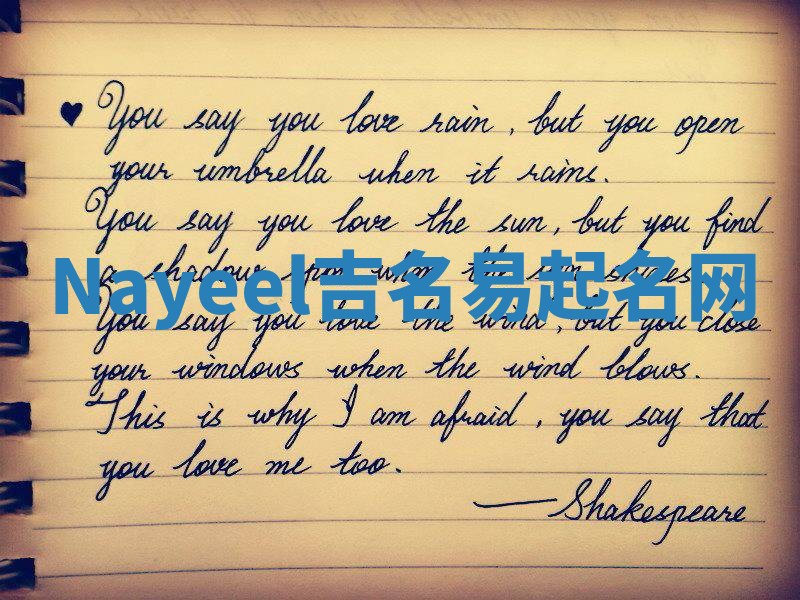 ♥ You say you love rain, but you open
your umbrella when it rains.
You say you love the sun, but you find
a shadow spot when the sun shines.
Nayeel吉名易起名网
You say you love the wind, but you close
your windows when the wind blows.
This is why I am afraid, you say that
you love me too.
—Shakespeare